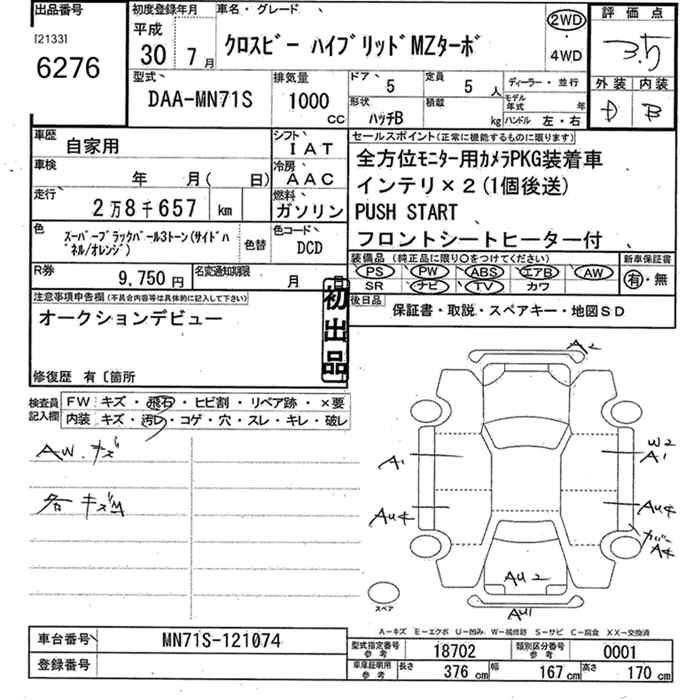 出品番号 初度登録年月 車名・グレード 2WD 評価点
[2133] 平成
6276 30年 7月 クロスビー ハイブリッドMZターボ ・ 3.5
4WD
型式 排気量 ドア 定員 ディーラー・並行 外装 内装
DAA-MN71S 1000 cc 5 5人 モデル年式 年 D B
形状 積載
ハッチB kg ハンドル 左・右
車歴 シフト セールスポイント(正常に機能するものに限ります)
自家用 IAT
車検 冷房 全方位モニター用カメラPKG装着車
年 月( 日) AAC インテリ×2(1個後送)
走行 燃料
2万8千657 km ガソリン PUSH START
色 色コード フロントシートヒーター付
スーパーブラックパール3トーン(サイドパネル/オレンジ) 色替 DCD 装備品(純正品に限り〇をつけてください) 新車保証書
R券 名変通知期限 PS PW ABS エアB AW 有・無
9,750円 月 日 SR ナビ TV カワ
注意事項申告欄(不具合内容等は具体的に記入して下さい) 初出品 後日品
オークションデビュー 保証書・取説・スペアキー・地図SD
修復歴 有〔箇所
検査員記入欄 FW キズ・飛石・ヒビ割・リペア跡・×要
内装 キズ・汚レ・コゲ・穴・スレ・キレ・破レ
AW.キズ
各キズM
A2
A1
W2
A1
AU4
AU4
A4
AU2
AU1
スペア
A-キズ E-エクボ U-凹み W-補修跡 S-サビ C-腐食 XX-交換済
車台番号 MN71S-121074 型式指定番号 参考 18702 類別区分番号 参考 0001
登録番号 車庫証明用 参考 長さ 376cm 幅 167cm 高さ 170cm